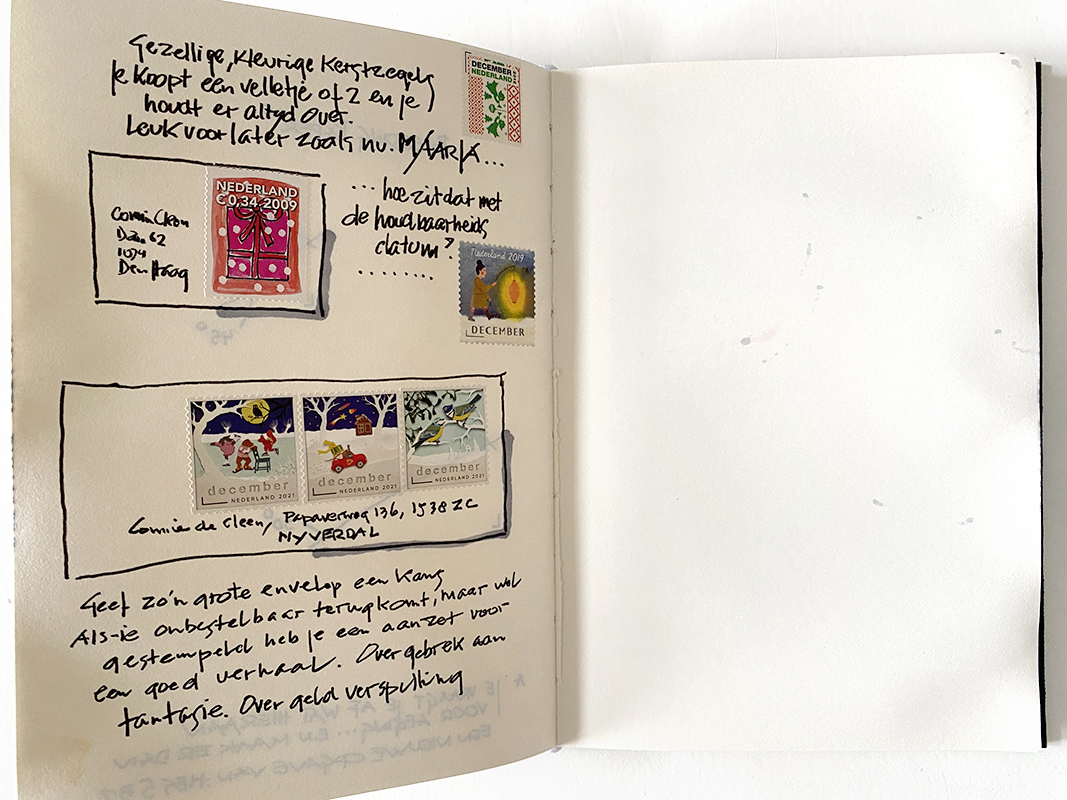 Gezellige, kleurige kerstzegels
Je koopt een velletje of 2 en je
houdt er altyd over.
Leuk voor later zoals nu. MAARJA...
DECEMBER
NEDERLAND
... hoe zit dat met
de houdbaarheids
datum?
........
NEDERLAND
€ 0,34 2009
Den Haag
Nederland 2019
DECEMBER
december
NEDERLAND 2021
december
NEDERLAND 2021
december
NEDERLAND 2021
Connie de Cleen, Papaverweg 136, 1538 ZC
NYVERDAL
Geef zo'n grote envelop een kans
Als-ie onbestelbaar terugkomt, maar wel
gestempeld heb je een aanzet voor
een goed verhaal. Over gebrek aan
fantasie. Over geld verspilling